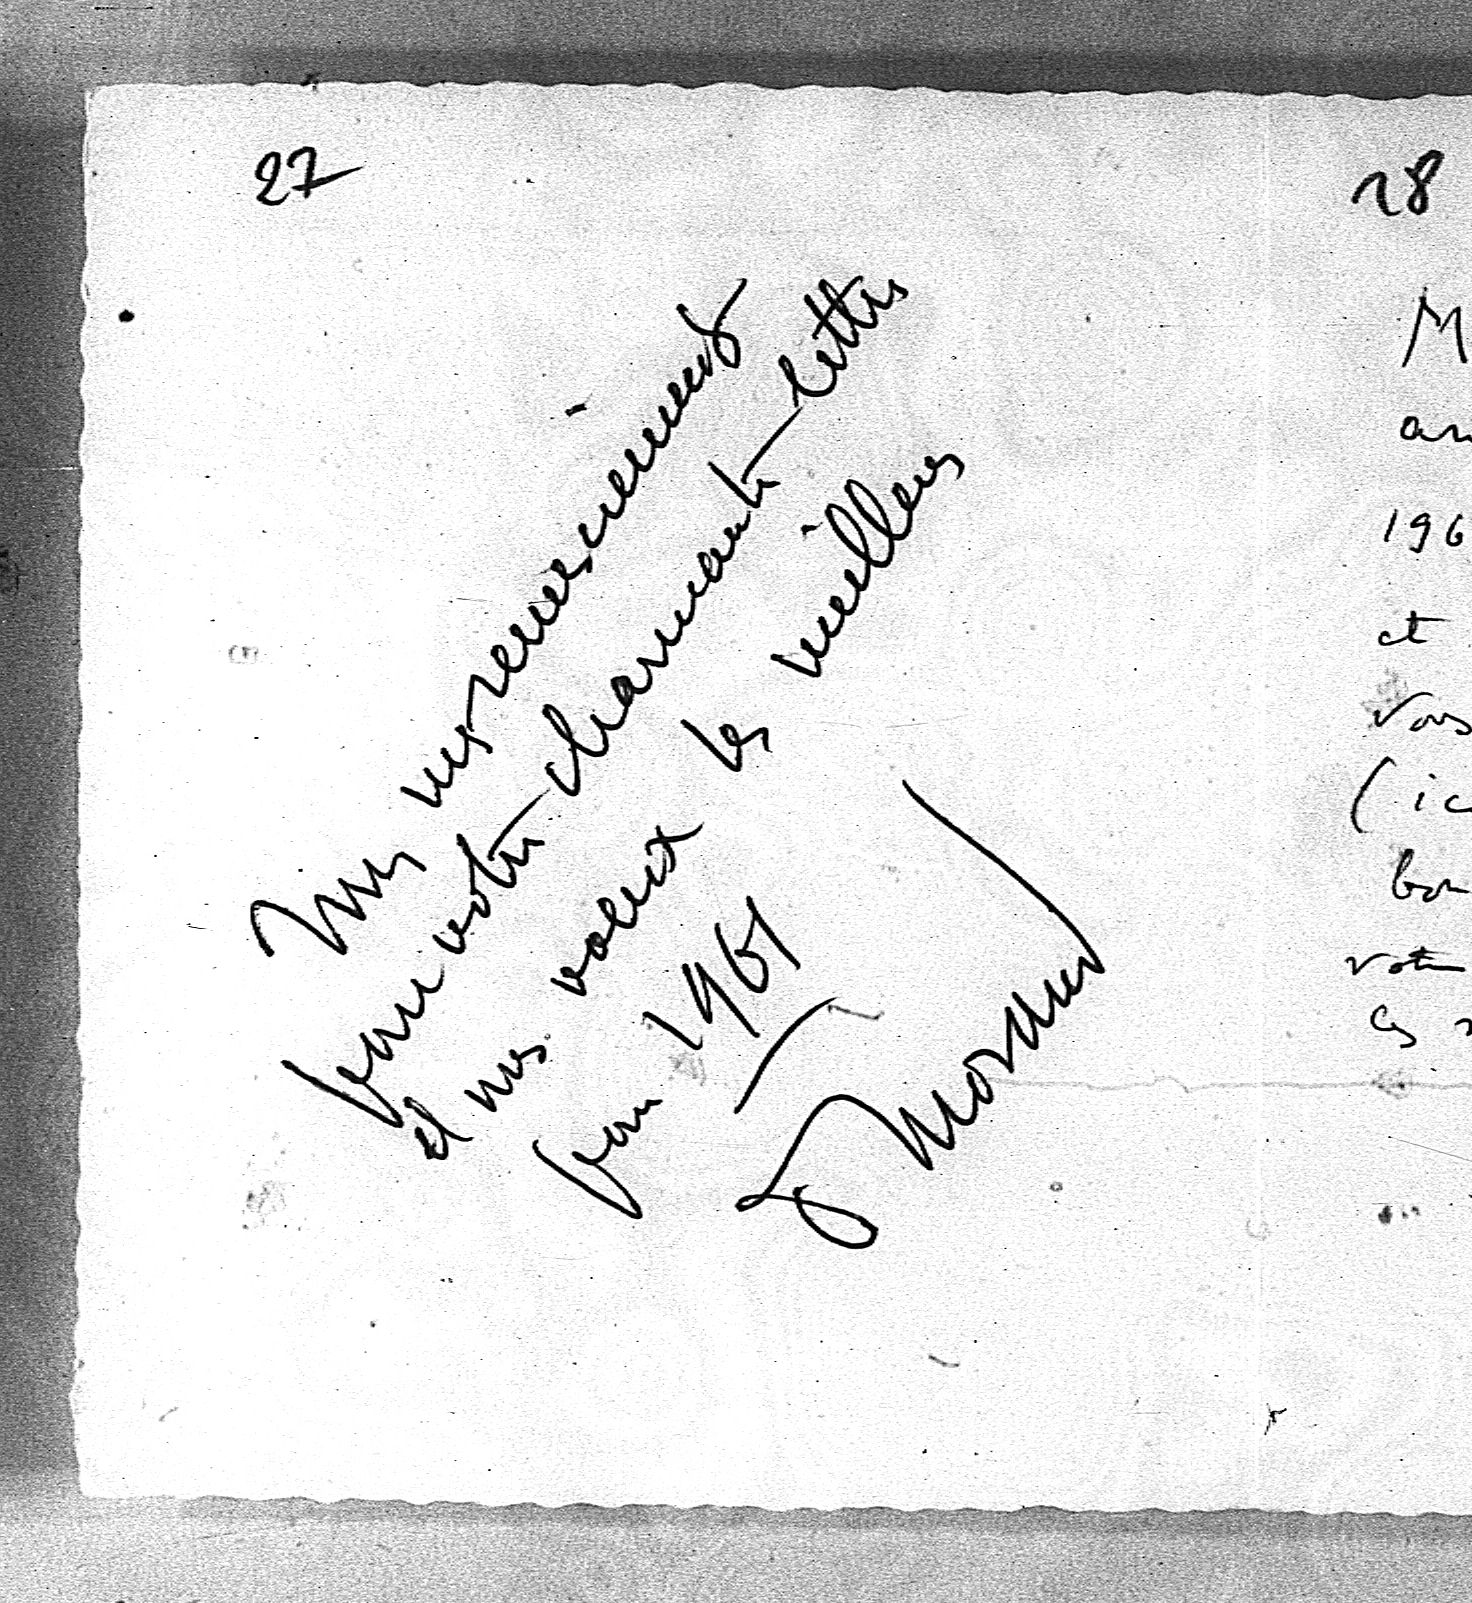 27
Mes remerciements
pour votre charmante lettre
et mes vœux les meilleurs
pour 1961
Morand
28
M
an
196
et
Vous
(ic
bon
votre